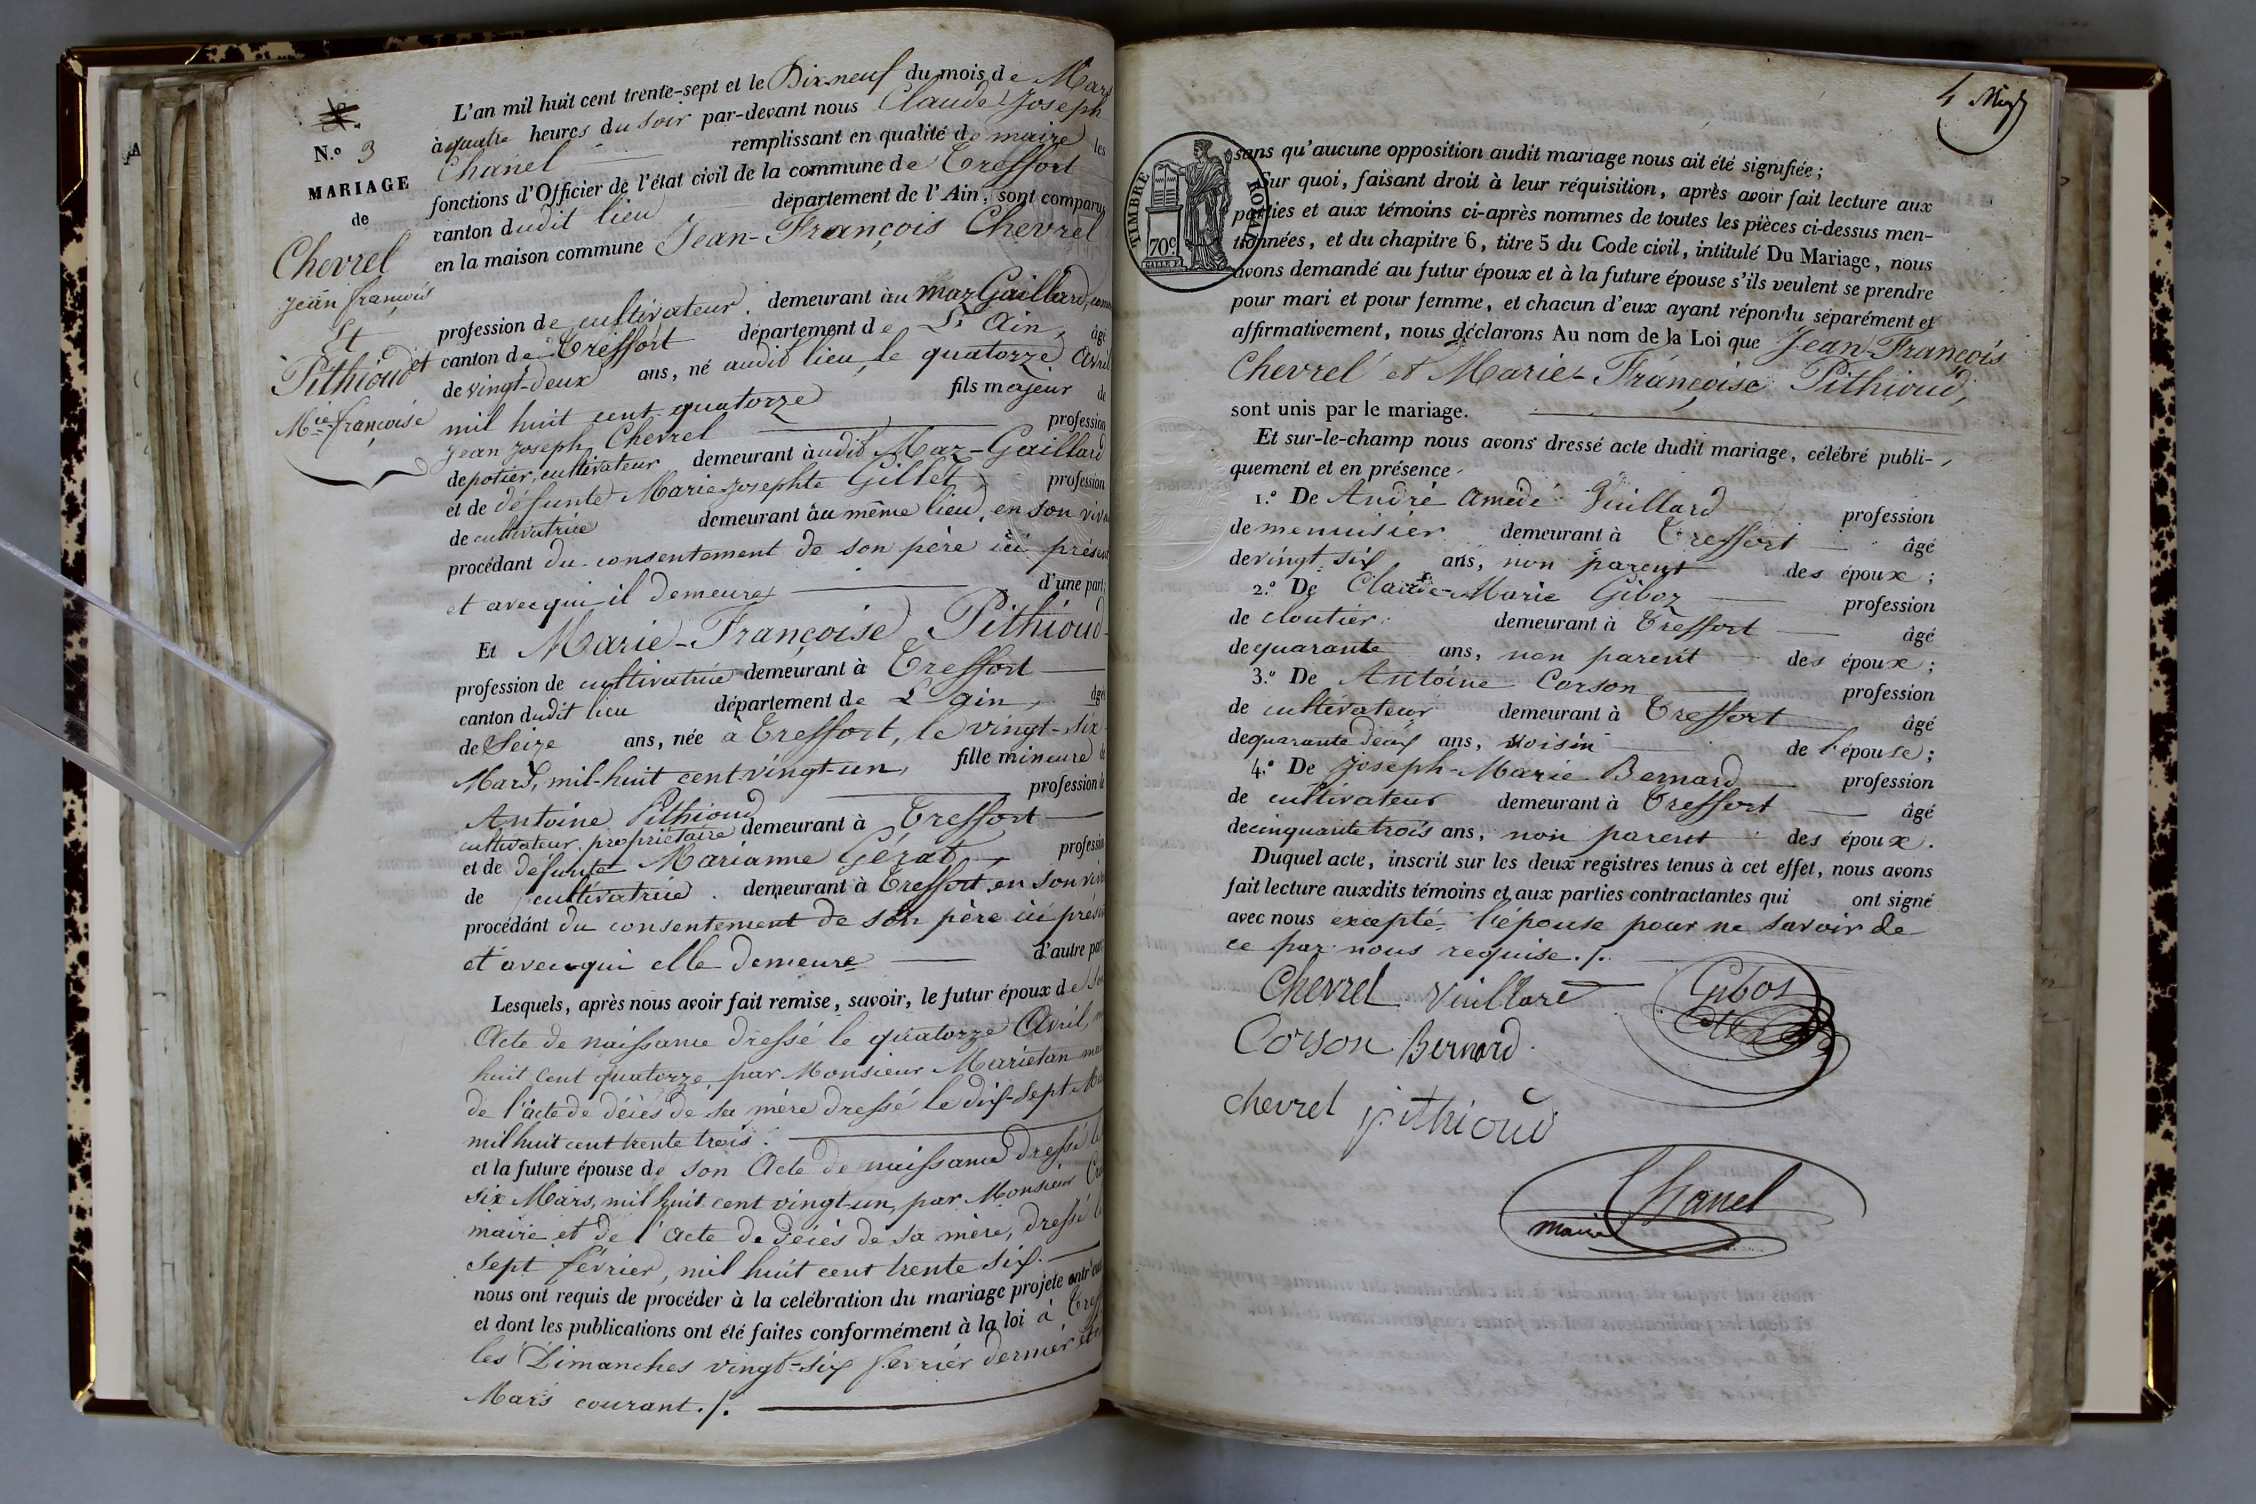 N.o 3
MARIAGE
de
Chevrel
Jean françois
Et
Pithioud
Mie françoise
L'an mil huit cent trente-sept et le Dix-neuf du mois de Mars
à quatre heures du soir par-devant nous Claude Joseph
Chanel remplissant en qualité de maire les
fonctions d'Officier de l'état civil de la commune de Treffort
canton dudit lieu département de l'Ain, sont comparus
en la maison commune Jean-François Chevrel
profession de cultivateur demeurant au maz Gaillard,
et canton de Treffort département de L'Ain, âgé
de vingt-deux ans, né audit lieu, le quatorze Avril
mil huit cent quatorze fils majeur de
Jean Joseph Chevrel profession
de potier, cultivateur demeurant audit Maz-Gaillard
et de défunte Marie Josephte Gillet, profession
de cultivatrice demeurant au même lieu, en son viv
procédant du consentement de son père ici présent
et avec qui il demeure d'une part;
Et Marie-Françoise Pithioud
profession de cultivatrice demeurant à Treffort
canton dudit lieu département de L'ain, âgée
de Seize ans, née à Treffort, le vingt-six
Mars, mil-huit cent vingt-un, fille mineure de
Antoine Pithioud profession de
cultivateur propriétaire demeurant à Treffort
et de défunte Marianne Gérat profession
de cultivatrice demeurant à Treffort, en son viv
procédant du consentement de son père ici présent
et avec qui elle demeure d'autre part
Lesquels, après nous avoir fait remise, savoir, le futur époux de son
Acte de naissance dressé le quatorze Avril, m
huit cent quatorze, par Monsieur Marietan
de l'acte de décès de sa mère dressé le dix-sept
mil huit cent trente trois.
et la future épouse de son Acte de naissance dressé le
six Mars, mil huit cent vingt-un, par Monsieur
maire et de l'acte de décès de sa mère, dressé le
sept février, mil huit cent trente six.
nous ont requis de procéder à la celébration du mariage projeté entr'eux
et dont les publications ont été faites conformément à la loi à Treff
les Dimanches vingt-six fevrier dernier et
Mars courant./.
TIMBRE ROYAL
70c
sans qu'aucune opposition audit mariage nous ait été signifiée;
Sur quoi, faisant droit à leur réquisition, après avoir fait lecture aux
parties et aux témoins ci-après nommes de toutes les pièces ci-dessus men-
tionnées, et du chapitre 6, titre 5 du Code civil, intitulé Du Mariage, nous
avons demandé au futur époux et à la future épouse s'ils veulent se prendre
pour mari et pour femme, et chacun d'eux ayant répondu séparément et
affirmativement, nous déclarons Au nom de la Loi que Jean-François
Chevrel et Marie-Françoise Pithioud,
sont unis par le mariage.
Et sur-le-champ nous avons dressé acte dudit mariage, célébré publi-
quement et en présence
1.o De André Amedé Vuillard profession
de menuisier demeurant à Treffort âgé
de vingt six ans, non parent des époux;
2.o De Claude-Marie Giboz profession
de cloutier demeurant à Treffort âgé
de quarante ans, non parent des époux;
3.o De Antoine Corson profession
de cultivateur demeurant à Treffort âgé
de quarante deux ans, voisin de l'épouse;
4.o De Joseph-Marie Bernard profession
de cultivateur demeurant à Treffort âgé
de cinquante trois ans, non parent des époux.
Duquel acte, inscrit sur les deux registres tenus à cet effet, nous avons
fait lecture auxdits témoins et aux parties contractantes qui ont signé
avec nous excepté l'épouse pour ne savoir de
ce par nous requise./.
Chevrel Vuillard Gibos
Corson Bernard
chevrel pithioud
Chanel
maire